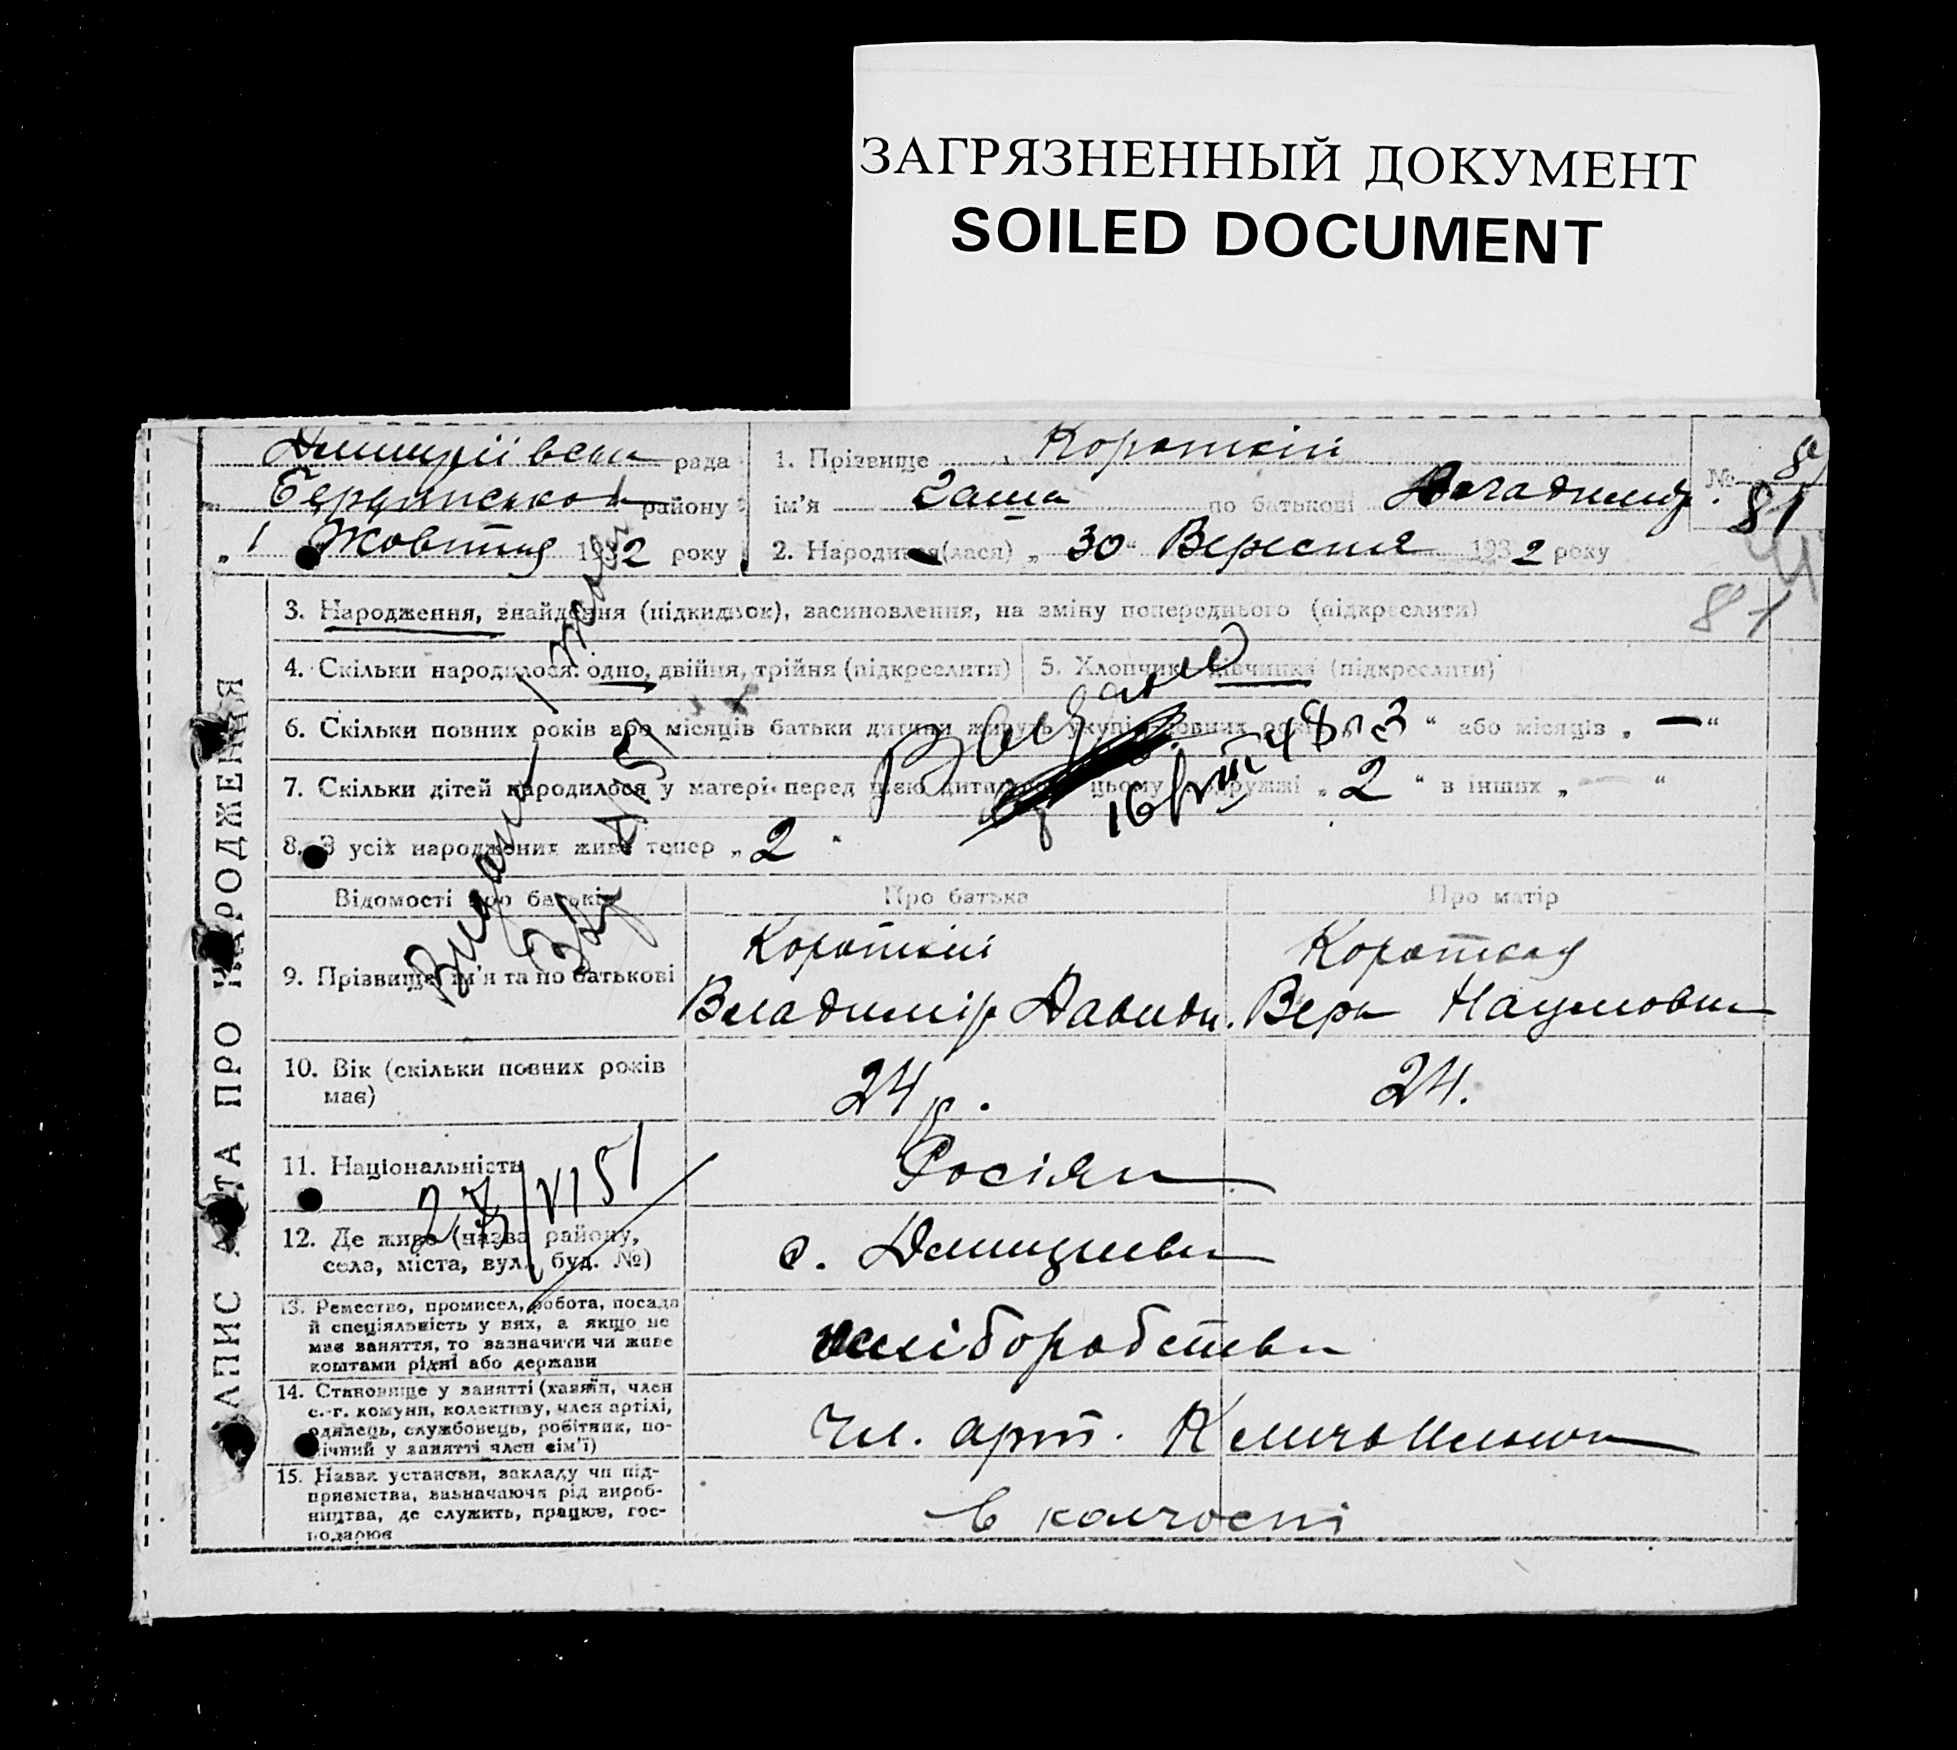 ЗАГРЯЗНЕННЫЙ ДОКУМЕНТ
SOILED DOCUMENT
рада
району
„ 1 Жовтня 1932 року
1. Прізвище Короткій
ім'я по батькові Владимир.
№ 81
2. Народився(лася) „ 30 “ Вересня 1932 року
81
ЗАПИС АКТА ПРО НАРОДЖЕННЯ
3. Народження, знайдення (підкидьок), засиновлення, на зміну попереднього (підкреслити)
4. Скільки народилося: одно, двійня, трійня (підкреслити)
5. Хлопчик дівчинка (підкреслити)
6. Скільки повних років або місяців батьки дитини живуть укупі: повних років „ 3 “ або місяців „ — “
7. Скільки дітей народилося у матері перед цією дитиною в цьому подружжі „ 2 “ в інших „ — “
8. З усіх народжених живе тепер „ 2 “
16/VIII-48
27/VI 51
Відомості про батьків
Про батька
Про матір
9. Прізвище, ім'я та по батькові
Короткій
Владимір Давидв.
Короткая
Вера Наумовна
10. Вік (скільки повних років має)
24 р.
24.
11. Національність
Росіян
12. Де живе (назва району, села, міста, вул., буд. №)
с.
13. Ремество, промисел, робота, посада й спеціяльність у них, а якщо не має заняття, то зазначити чи живе коштами рідні або держави
хліборобства
14. Становище у занятті (хазяїн, член с.-г. комуни, колективу, член артілі, одинець, службовець, робітник, помічний у занятті член сім'ї)
Чл. арт.
15. Назва установи, закладу чи підприємства, зазначаючи рід виробництва, де служить, працює, господарює
в колгоспі